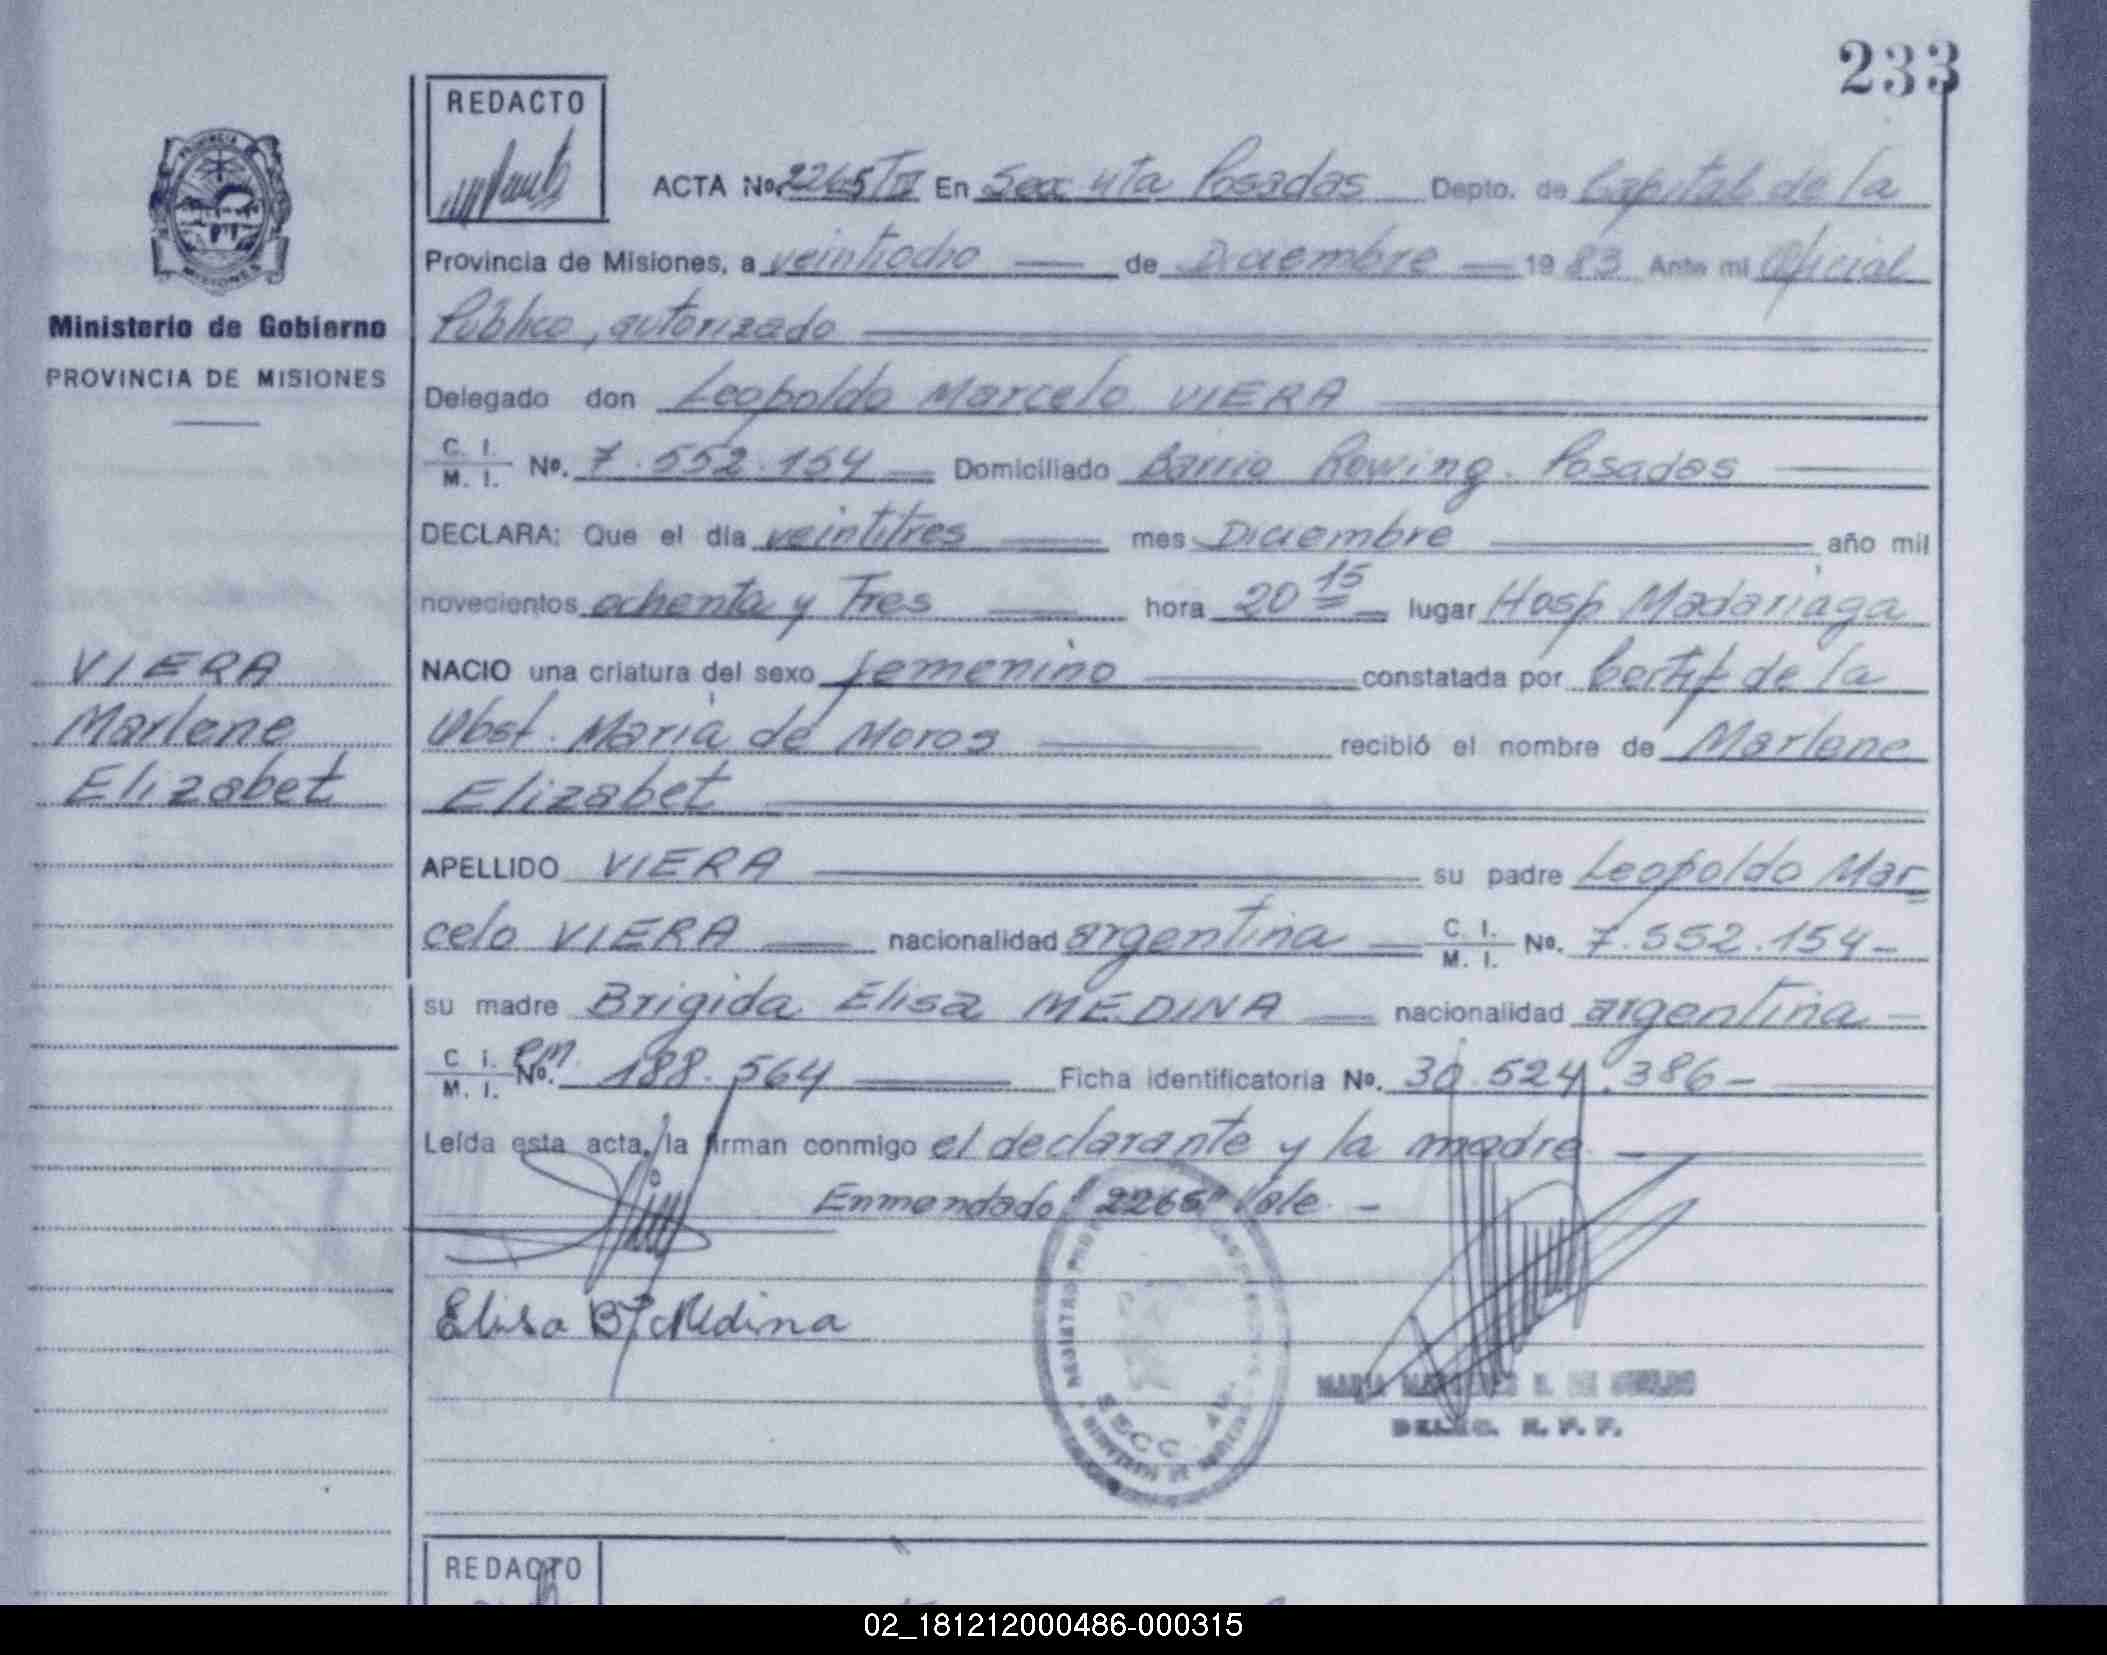 233
REDACTO
ACTA No. 2265/IV En Secc 4ta Posadas Depto. de Capital de la
Provincia de Misiones, a veintiocho de Diciembre 1983 Ante mi Oficial
Público, autorizado
Ministerio de Gobierno
PROVINCIA DE MISIONES
Delegado don Leopoldo Marcelo VIERA
C. I. M. I. No. 7.552.154 Domiciliado Barrio Rowing. Posadas
DECLARA: Que el día veintitres mes Diciembre año mil
novecientos ochenta y Tres hora 20 15 lugar Hosp Madariaga
NACIO una criatura del sexo femenino constatada por Certif de la
Obst. Maria de Moros recibió el nombre de Marlene
Elizabet
VIERA
Marlene
Elizabet
APELLIDO VIERA su padre Leopoldo Mar-
celo VIERA nacionalidad argentina C. I. M. I. No. 7.552.154-
su madre Brigida Elisa MEDINA nacionalidad argentina
C. I. M. I. No. em. 188.564 Ficha identificatoria No. 30.524.386-
Leída esta acta, la firman conmigo el declarante y la madre
Enmendado "2265" Vale. -
Elisa B. Medina
SECC 4a.
DELEG. R. P. P.
REDACTO
02_181212000486-000315